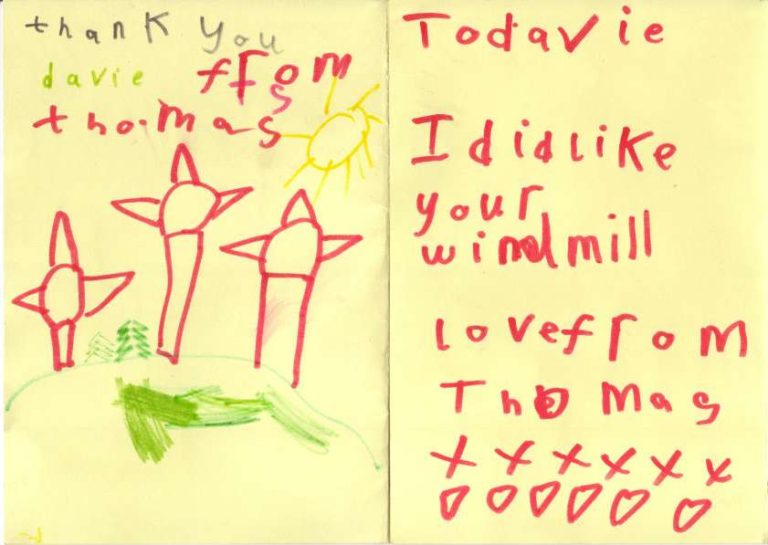 thank you
davie from
thomas
Todavie
I did like
your
windmill
love from
Thomas
x x x x x x